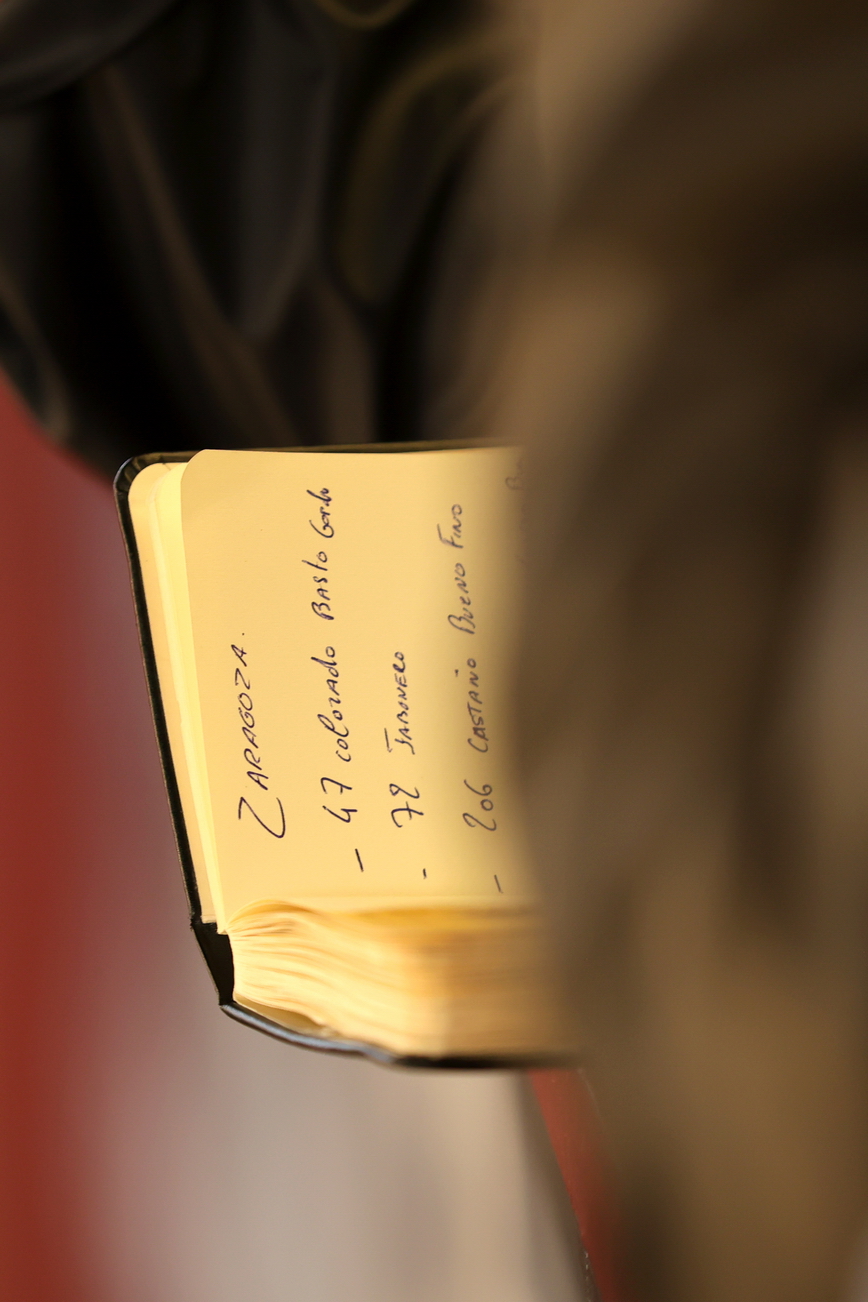 ZARAGOZA.
- 47 colorado Basto Gordo
- 72 JABONERO
- 206 CASTAÑO BUENO FINO